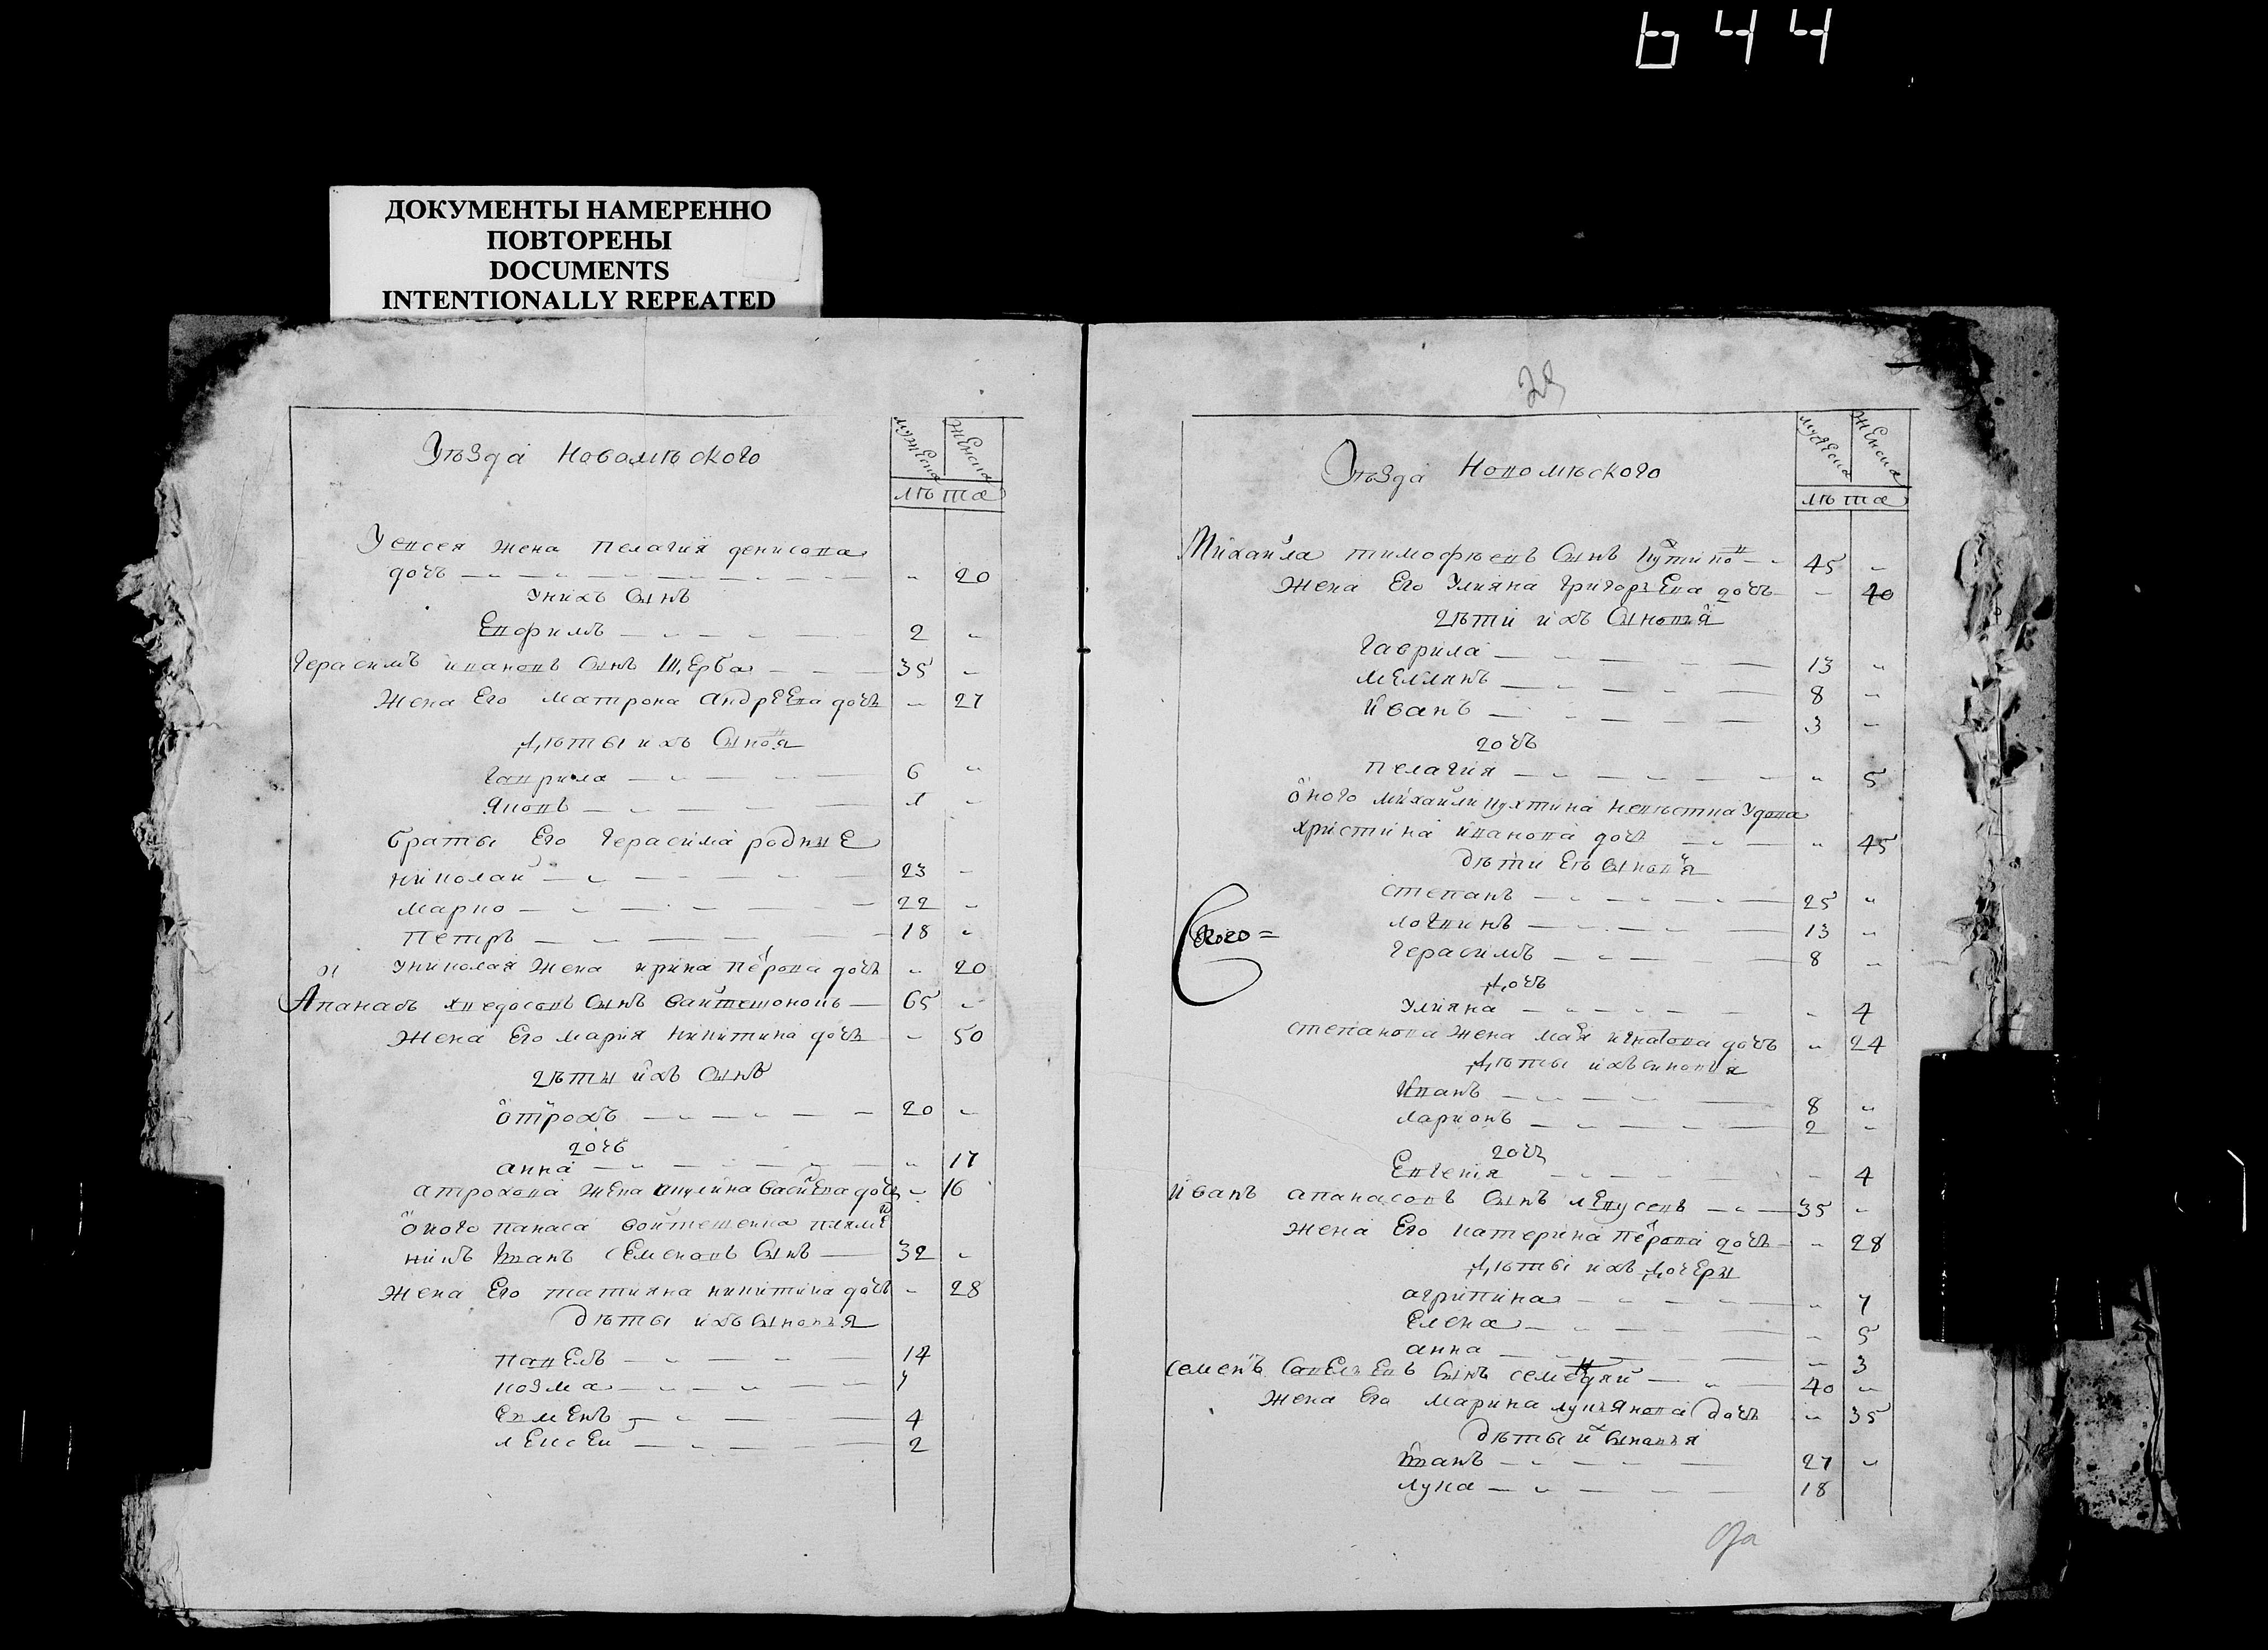 644
ДОКУМЕНТЫ НАМЕРЕННО
ПОВТОРЕНЫ
DOCUMENTS
INTENTIONALLY REPEATED
Уѣзда Новомѣского
мужеска женска
лѣта
Уевсея жена пелагия денисова
дочь 20
унихъ сынъ
Евфимъ 2
герасимъ ивановъ сынъ щерба 35
жена Его матрона андрЕЕва дочь 27
дѣты ихъ сыновя
гаврила 6
Яковъ 1
браты Его герасима родныЕ
николай 23
марко 22
петръ 18
униколая жена ирина пеٜрова дочь 20
Апанасъ хведосовъ сынъ войтешонокъ 65
жена Его мария никитина дочь 50
дѣты ихъ сынъ
отрохъ 20
дочъ
анна 17
атрохова жена акулина васиЕва дочь 16
оного панаса войтешенка племЕ
никъ Иванъ сЕменовъ сынъ 32
жена Его татияна никитина дочь 28
дѣты ихъ сыновья
павЕлъ 14
козма 7
ЕхмЕнъ 4
лЕксЕй 2
29
Уѣзда Новомѣского
мужеска женска
лѣта
Михайла тимофѣевъ сынъ 45
жена Его Улияна григорьЕва дочь 40
дѣти ихъ сыновья
гаврила 13
мЕлянъ 8
иванъ 3
дочь
пелагия 5
оного михайли пухтина невѣстка удова
христина иванова дочь 45
дѣти Еѣ сыновя
степанъ 25
логвинъ 13
герасимъ 8
дочь
Улияна 4
степанова жена мая игнатова дочь 24
дѣты ихъ синовья
Иванъ 8
ларионъ 2
дочь
Евгения 4
иванъ апанасовъ сынъ 35
жена Его катерина перова дочь 28
дѣты ихъ дочЕры
агрипина 7
Елена 5
анна 3
семенъ савЕльЕвъ сынъ 40
жена Его марина лукъянова дочь 35
дѣты и сыновья
Иванъ 27
лука 18